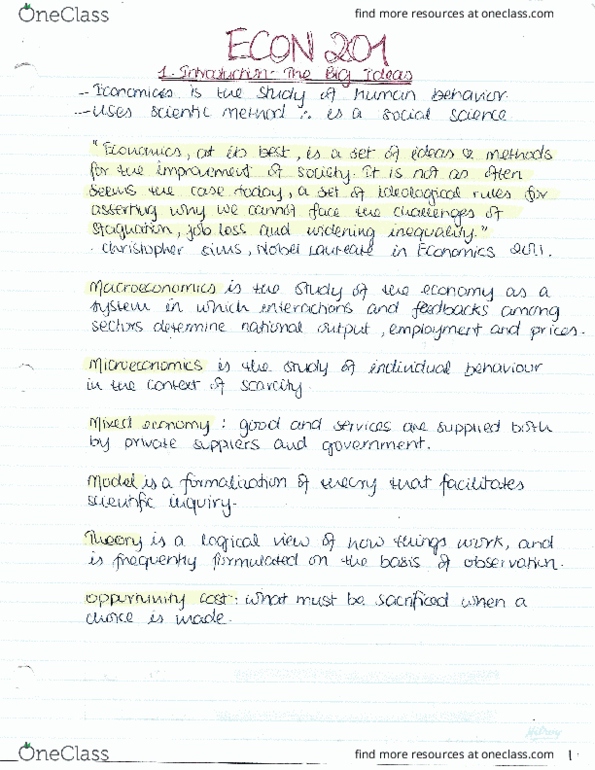 OneClass
find more resources at oneclass.com
ECON 201
1. Introduction - The Big Ideas
- Economics is the study of human behavior.
- Uses scientic method ∴ is a social science
"Economics, at its best, is a set of ideas & methods
for the improvement of society. It is not as often
seems the case today, a set of ideological rules for
asserting why we cannot face the challenges of
stagnation, job loss and widening inequality."
· Christopher Sims, Nobel Laureate in Economics 2011.
Macroeconomics is the study of the economy as a
system in which interactions and feedbacks among
sectors determine national output, employment and prices.
Microeconomics is the study of individual behaviour
in the context of scarcity.
Mixed economy : good and services are supplied both
by private suppliers and government.
Model is a formalization of theory that facilitates
scientific inquiry.
Theory is a logical view of how things work, and
is frequently formulated on the basis of observation.
opportunity cost : what must be sacrificed when a
choice is made.
Hilroy
OneClass
find more resources at oneclass.com
1